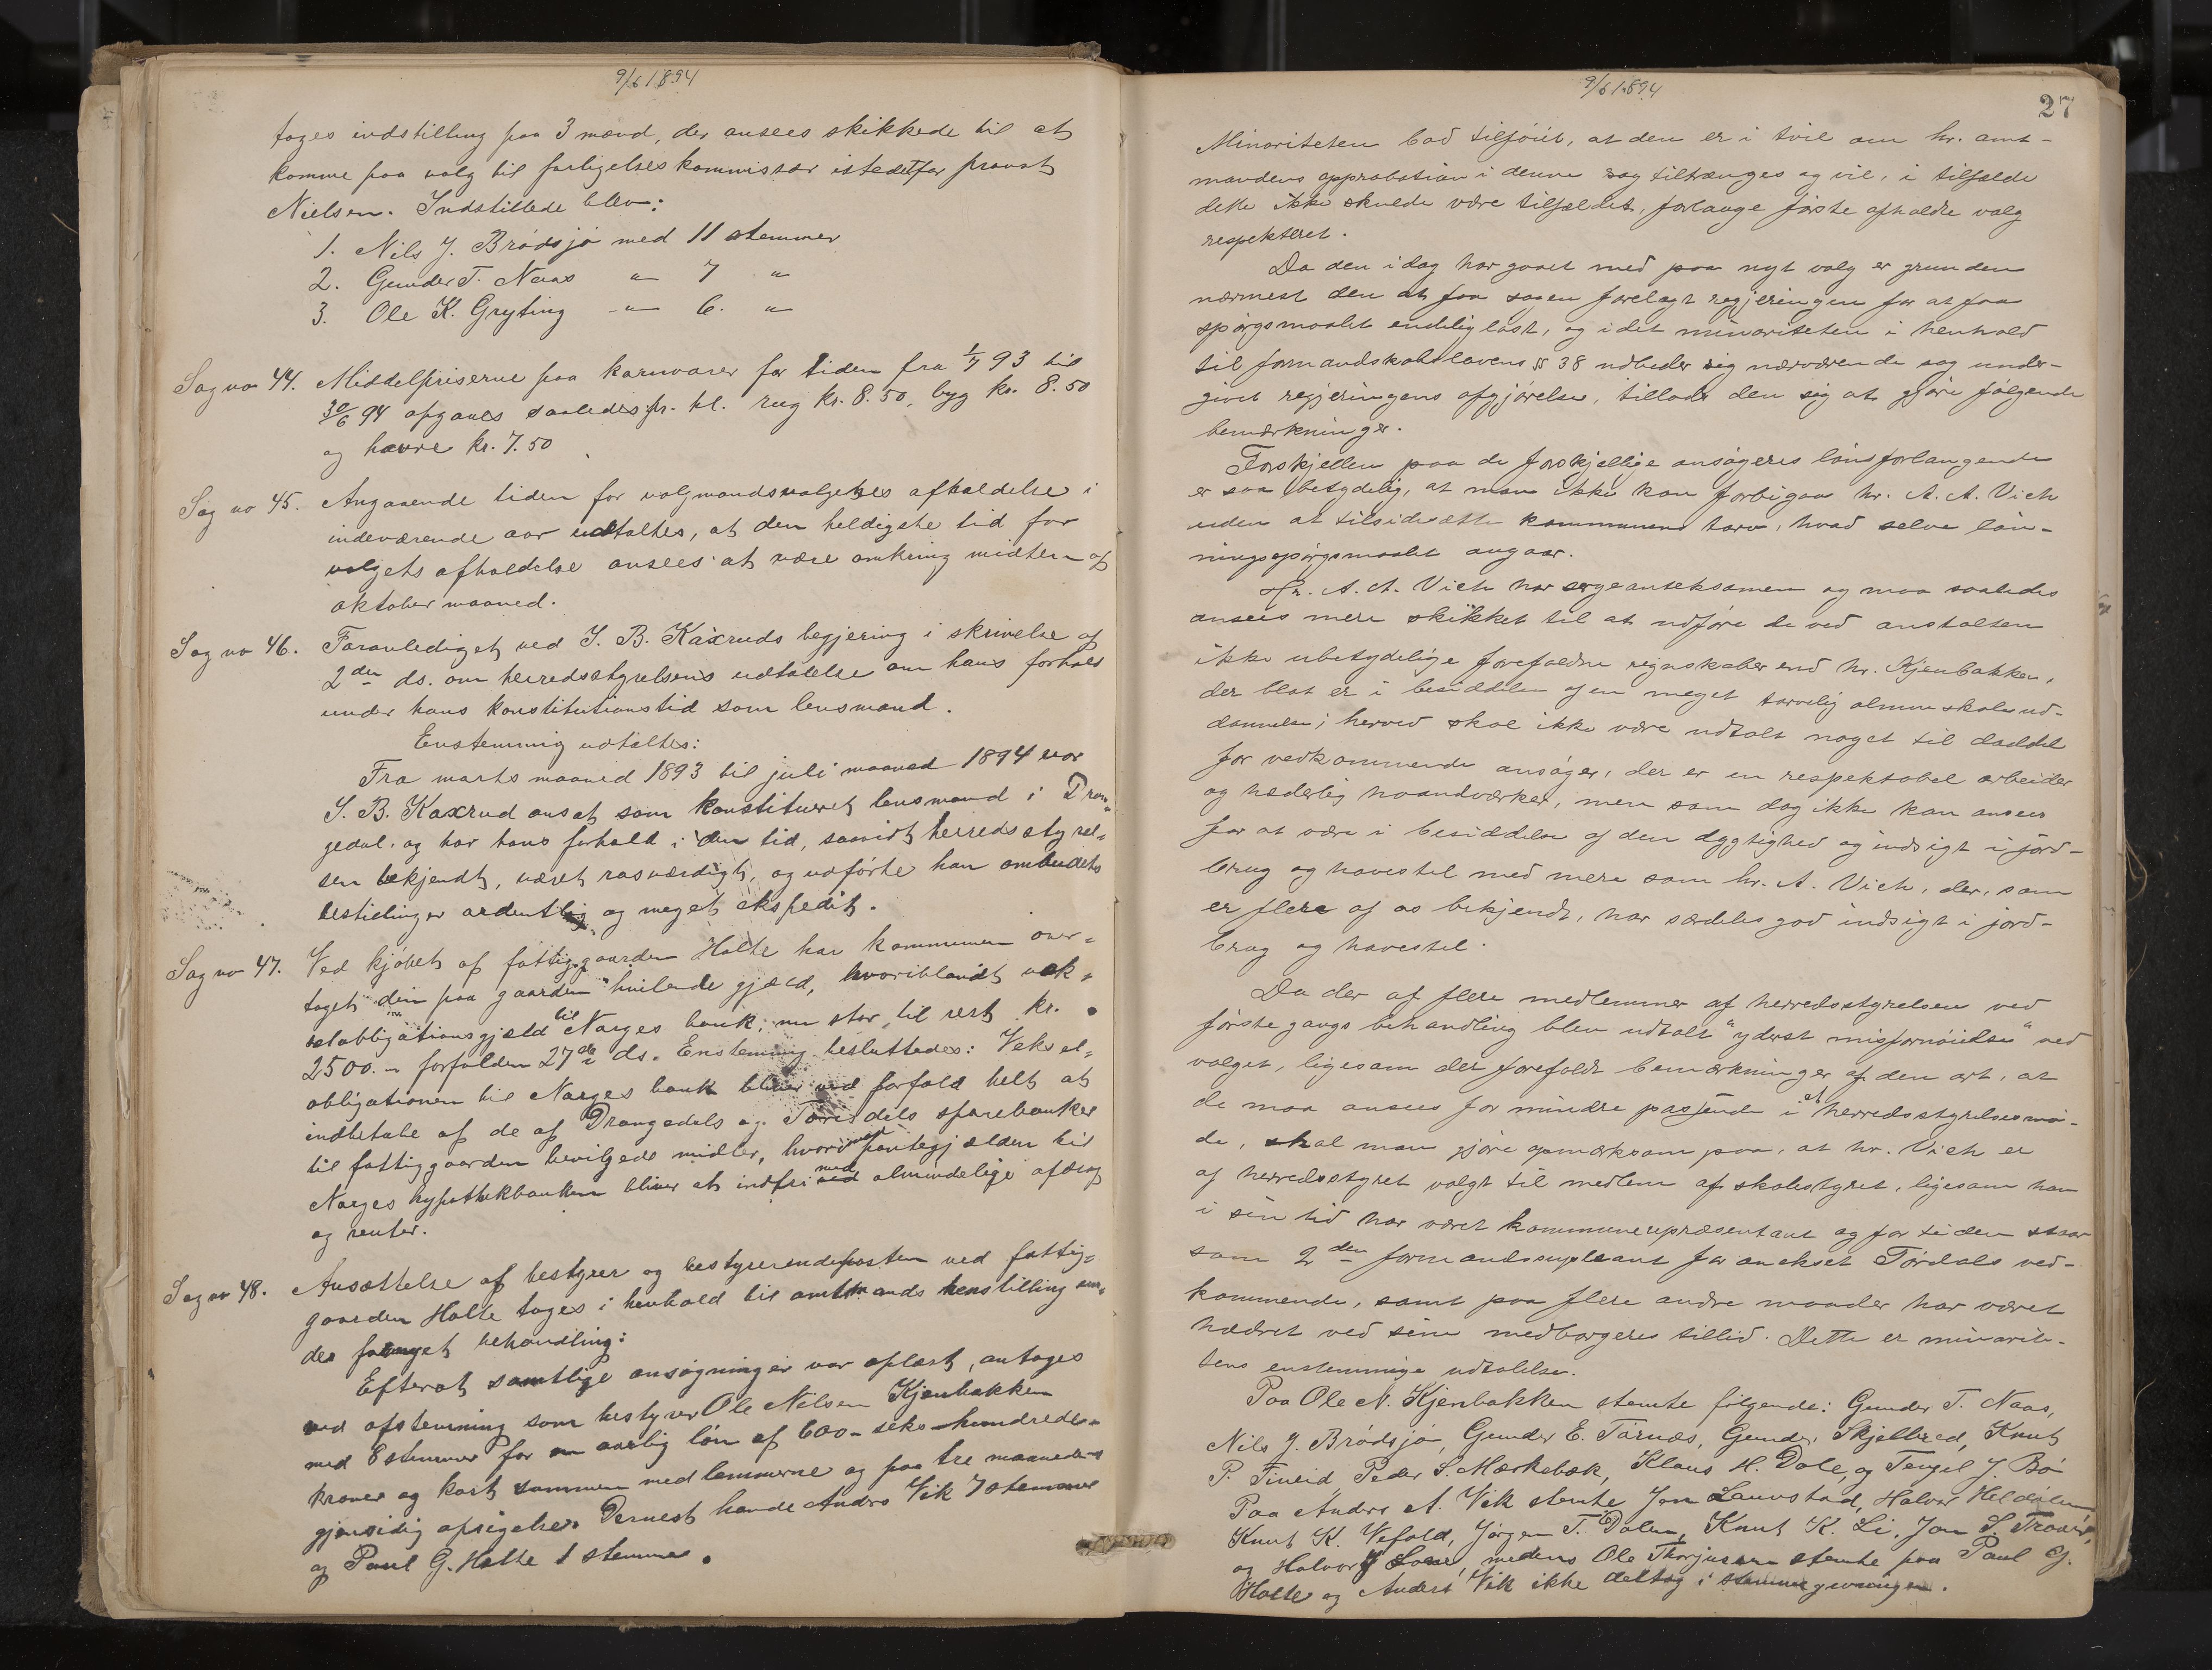 9/6 1894
tages indstilling paa 3 mænd, der ansees skikkede til at
komme paa valg til forligelseskommissær istedetfor provst
Nielsen. Indstillede blev:
1. Nils J. Brødsjø med 11 stemmer
2. Gunder T. Naas " 7 "
3. Ole K. Gryting " 6. "
Sag no 44. Middelpriserne paa kornvarer for tiden fra 1/7 93 til
30/6 94 opgaves saaledes: pr. hl. rug kr. 8.50, byg kr. 8.50
og havre kr. 7.50
Sag no 45. Angaaende tiden for valgmandsvalgenes afholdelse i
indeværende aar udtaltes, at den heldigste tid for
valgets afholdelse ansees at være omkring midten af
oktober maaned.
Sag no 46. Foranlediget ved S. B. Kaxruds begjering i skrivelse af
2den ds. om herredsstyrelsens udtalelse om hans forhold
under hans konstitutionstid som lensmand.
Enstemmig udtaltes:
Fra marts maaned 1893 til juli maaned 1894 var
S. B. Kaxrud ansat som konstitueret lensmand i Dran-
gedal, og har hans forhold i den tid, saavidt herredsstyrel-
sen bekjendt, været rosværdigt, og udførte han ombudets
bestillinger ordentlig og meget ekspedit.
Sag no 47. Ved kjøbet af fattiggaarden Holte har kommunen over-
taget den paa gaarden hvilende gjæld, hvoriblandt vek-
selobligationsgjæld til Norges bank, nu stor til rest kr.
2500.- forfalden 27de ds. Enstemmig besluttedes: Veksel-
obligationen til Norges bank bliver ved forfald helt at
indbetale af de af Drangedals og Tørdals sparebanker
til fattiggaarden bevilgede midler, hvorimod pantegjælden til
Norges hypothekbanken bliver at indfri med almindelige afdrag
og renter.
Sag no 48. Ansættelse af bestyrer og bestyrerindeposten ved fattig-
gaarden Holte toges i henhold til amtmands henstilling un-
der fornyet behandling:
Efterat samtlige ansøgninger var oplæst, antoges
ved afstemning som bestyrer Ole Nilsen Kjenbakken
med 8 stemmer for en aarlig løn af 600 - seks hundrede -
kroner og kost sammen med lemmerne og paa tre maaneders
gjensidig opsigelse. Dernest havde Anders Vik 7 stemmer
og Paul G. Holte 1 stemme.
9/6 1894
27
Minoriteten bad tilføiet, at den er i tvil om hr. amt-
mandens approbation i denne sag tiltrænges og vil, i tilfælde
dette ikke skulde være tilfældet, forlange første afholdte valg
respekteret.
Da den idag har gaaet med paa nyt valg er grunden
nærmest den at faa sagen forelagt regjeringen for at faa
spørgsmaalet endelig løst, og idet minoriteten i henhold
til formandskabslovens § 38 udbeder sig nærværende sag under-
givet regjeringens afgjørelse, tillader den sig at gjøre følgende
bemærkninger.
Forskjellen paa de forskjellige ansøgeres lønsforlangende
er saa betydelig, at man ikke kan forbigaa hr. A. A. Vich
uden at tilsidesætte kommunens tarv, hvad selve løn-
ningsspørgsmaalet angaar.
Hr. A. A. Vich har sergeanteksamen og maa saaledes
ansees mere skikket til at udføre de ved anstalten
ikke ubetydelige forefaldne regnskaber end hr. Kjenbakken,
der blot er i besiddelse af en meget tarvelig almueskoleud-
dannelse; herved skal ikke være udtalt noget til daddel
for vedkommende ansøger, der er en respektabel arbeider
og hæderlig haandværker, men som dog ikke kan ansees
for at være i besiddelse af den dygtighed og indsigt i jord-
brug og havestel med mere som hr. A. Vich, der, som
er flere af os bekjendt, har særdeles god indsigt i jord-
brug og havestel.
Da der af flere medlemmer af herredsstyrelsen ved
førstegangs behandling blev udtalt "yderst misfornøielse" ved
valget, ligesom der forefaldt bemærkninger af den art, at
de maa ansees for mindre passende i et herredsstyrelsesmø-
de, skal man gjøre opmærksom paa, at hr. Vich er
af herredsstyret valgt til medlem af skolestyret, ligesom han
i sin tid har været kommunerepræsentant og for tiden staar
som 2den formandssupleant for anekset Tørdals ved-
kommende, samt paa flere andre maader har været
hædret ved sine medborgeres tillid. Dette er minorite-
tens enstemmige udtalelse.
Paa Ole N. Kjenbakken stemte følgende: Gunder T. Naas,
Nils J. Brødsjø, Gunder E. Tørnæs, Gunder Skjelbred, Knut
P. Fineid, Peder S. Mærkebæk, Klaus H. Dale, og Tengel J. Bø
Paa Anders A. Vik stemte Jon Lauvstad, Halvor Heldalen,
Knut K. Vefald, Jørgen T. Dalen, Knut K. Li, Jon S.
og Halvor medens Ole Thorjussen stemte paa Paul G.
Holte og Anders Vik ikke deltog i stemmegivningen.